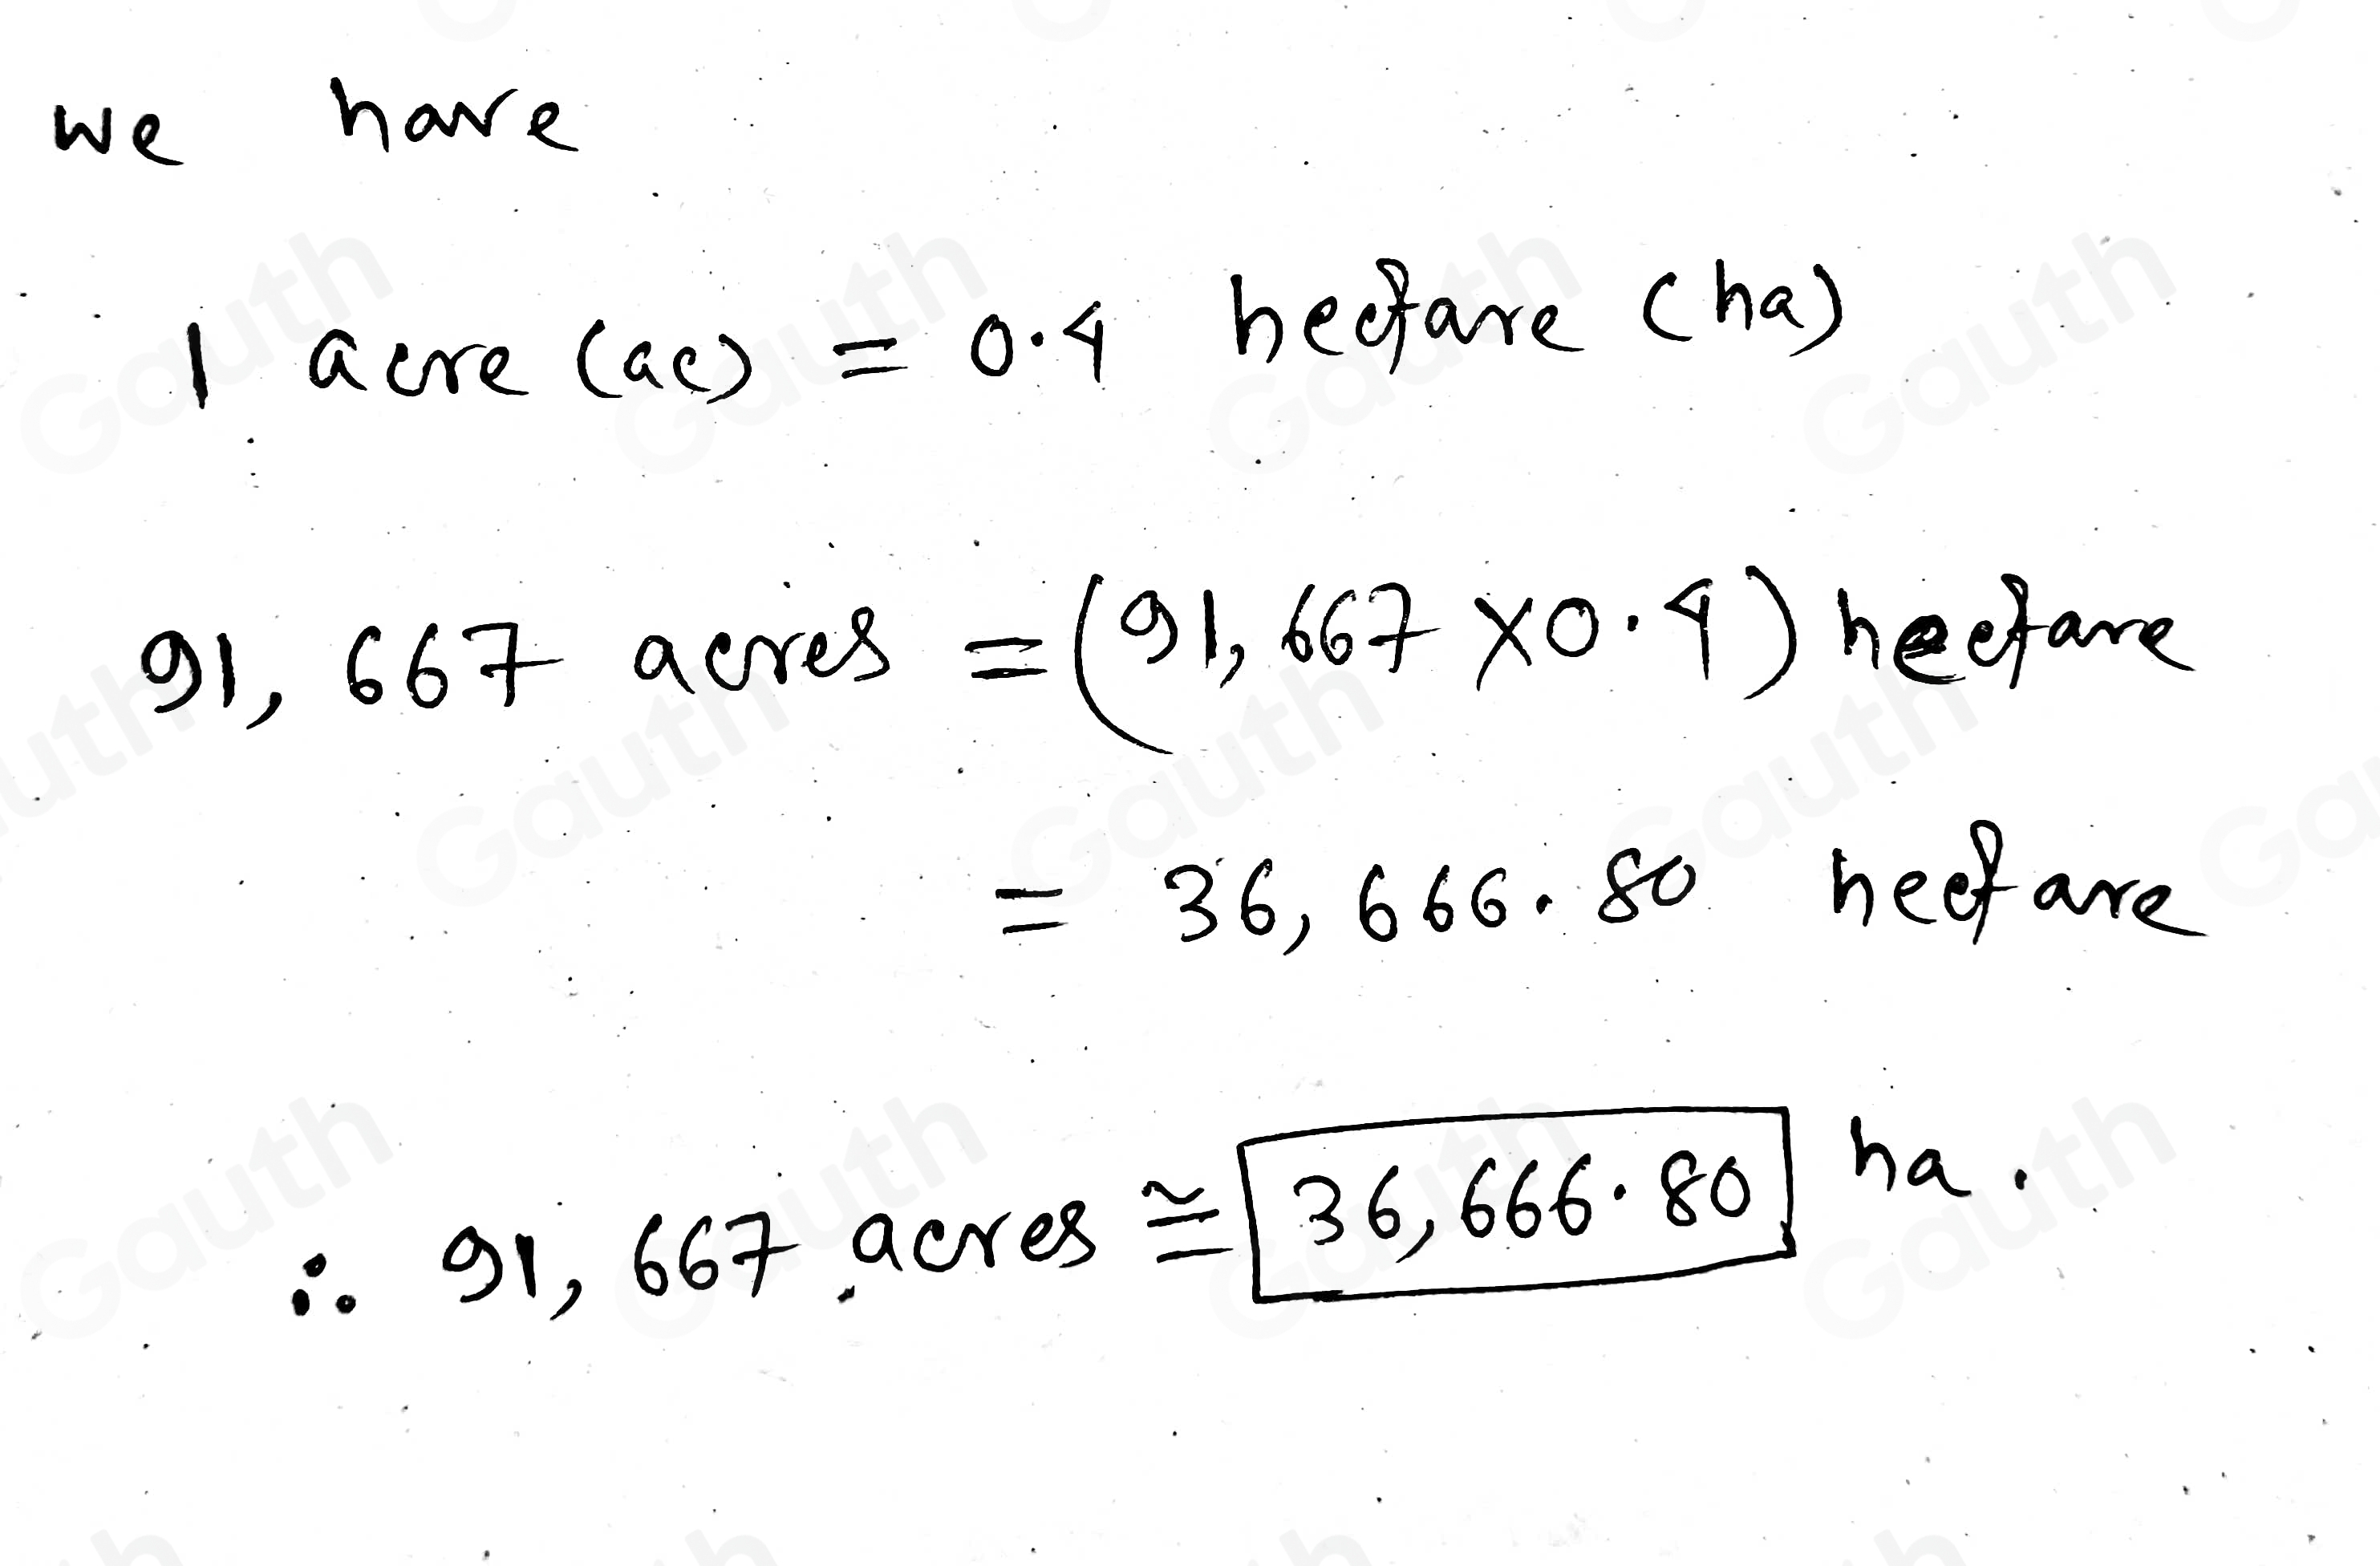 we have
1 acre (ac) = 0.4 hectare (ha)
91,667 acres = (91,667 × 0.4) hectare
= 36,666.80 hectare
∴ 91,667 acres ≅ 36,666.80 ha.